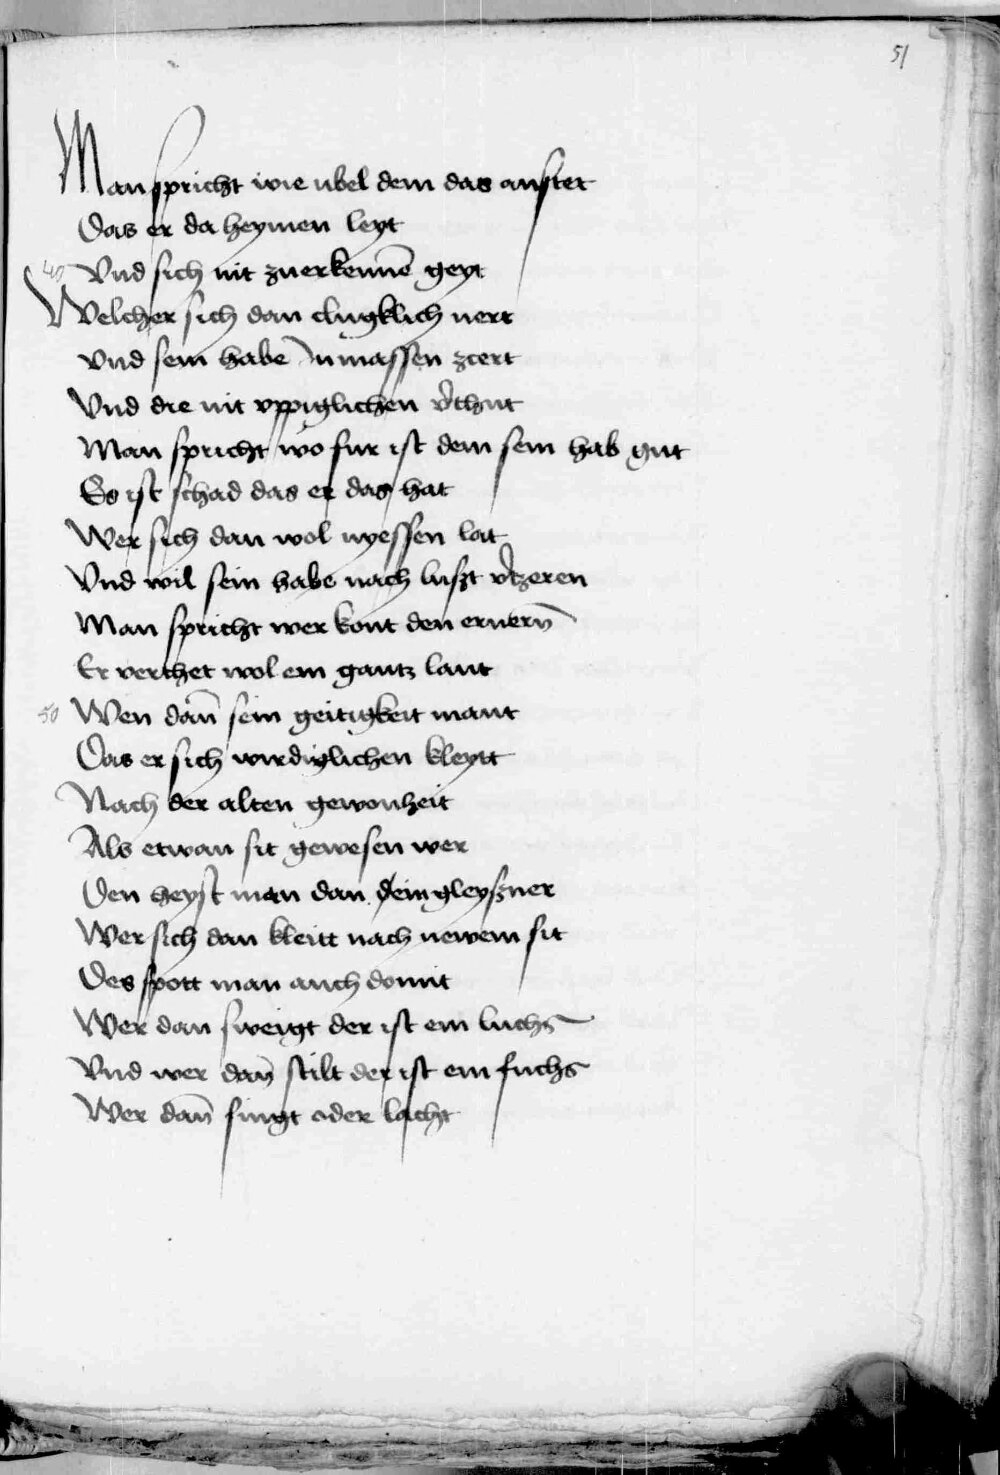 51
Man spricht wie ubel dem das anstet
Das er da heymen leyt
40 Vnd sich nit zuerkenne͂ geyt
Welcher sich dan clugklich nert
vnd sein habe In massen zcert
Vnd die nit vppiglichen v͛thut
Man spricht wo fur ist dem sein hab gut
Es ist schad das er das hat
Wer sich dan wol nyessen lat
Vnd wil sein habe nach lußt v͛tzeren
Man spricht wer kont den ernern̄
Er verthet wol ein gantz lant
50 Wen dan̄ sein geitigkeit mant
Das er sich wirdiglichen kleytt
Nach der alten gewonheit
Als etwan sit gewesen wer
Den heyst man dan gleyßner
Wer sich dan kleitt nach newem sit
Des spott man auch domit
Wer dan sweigt der ist ein luchs
Vnd wer dan̄ stilt der ist ein fuchs
Wer dan̄ singt oder lacht